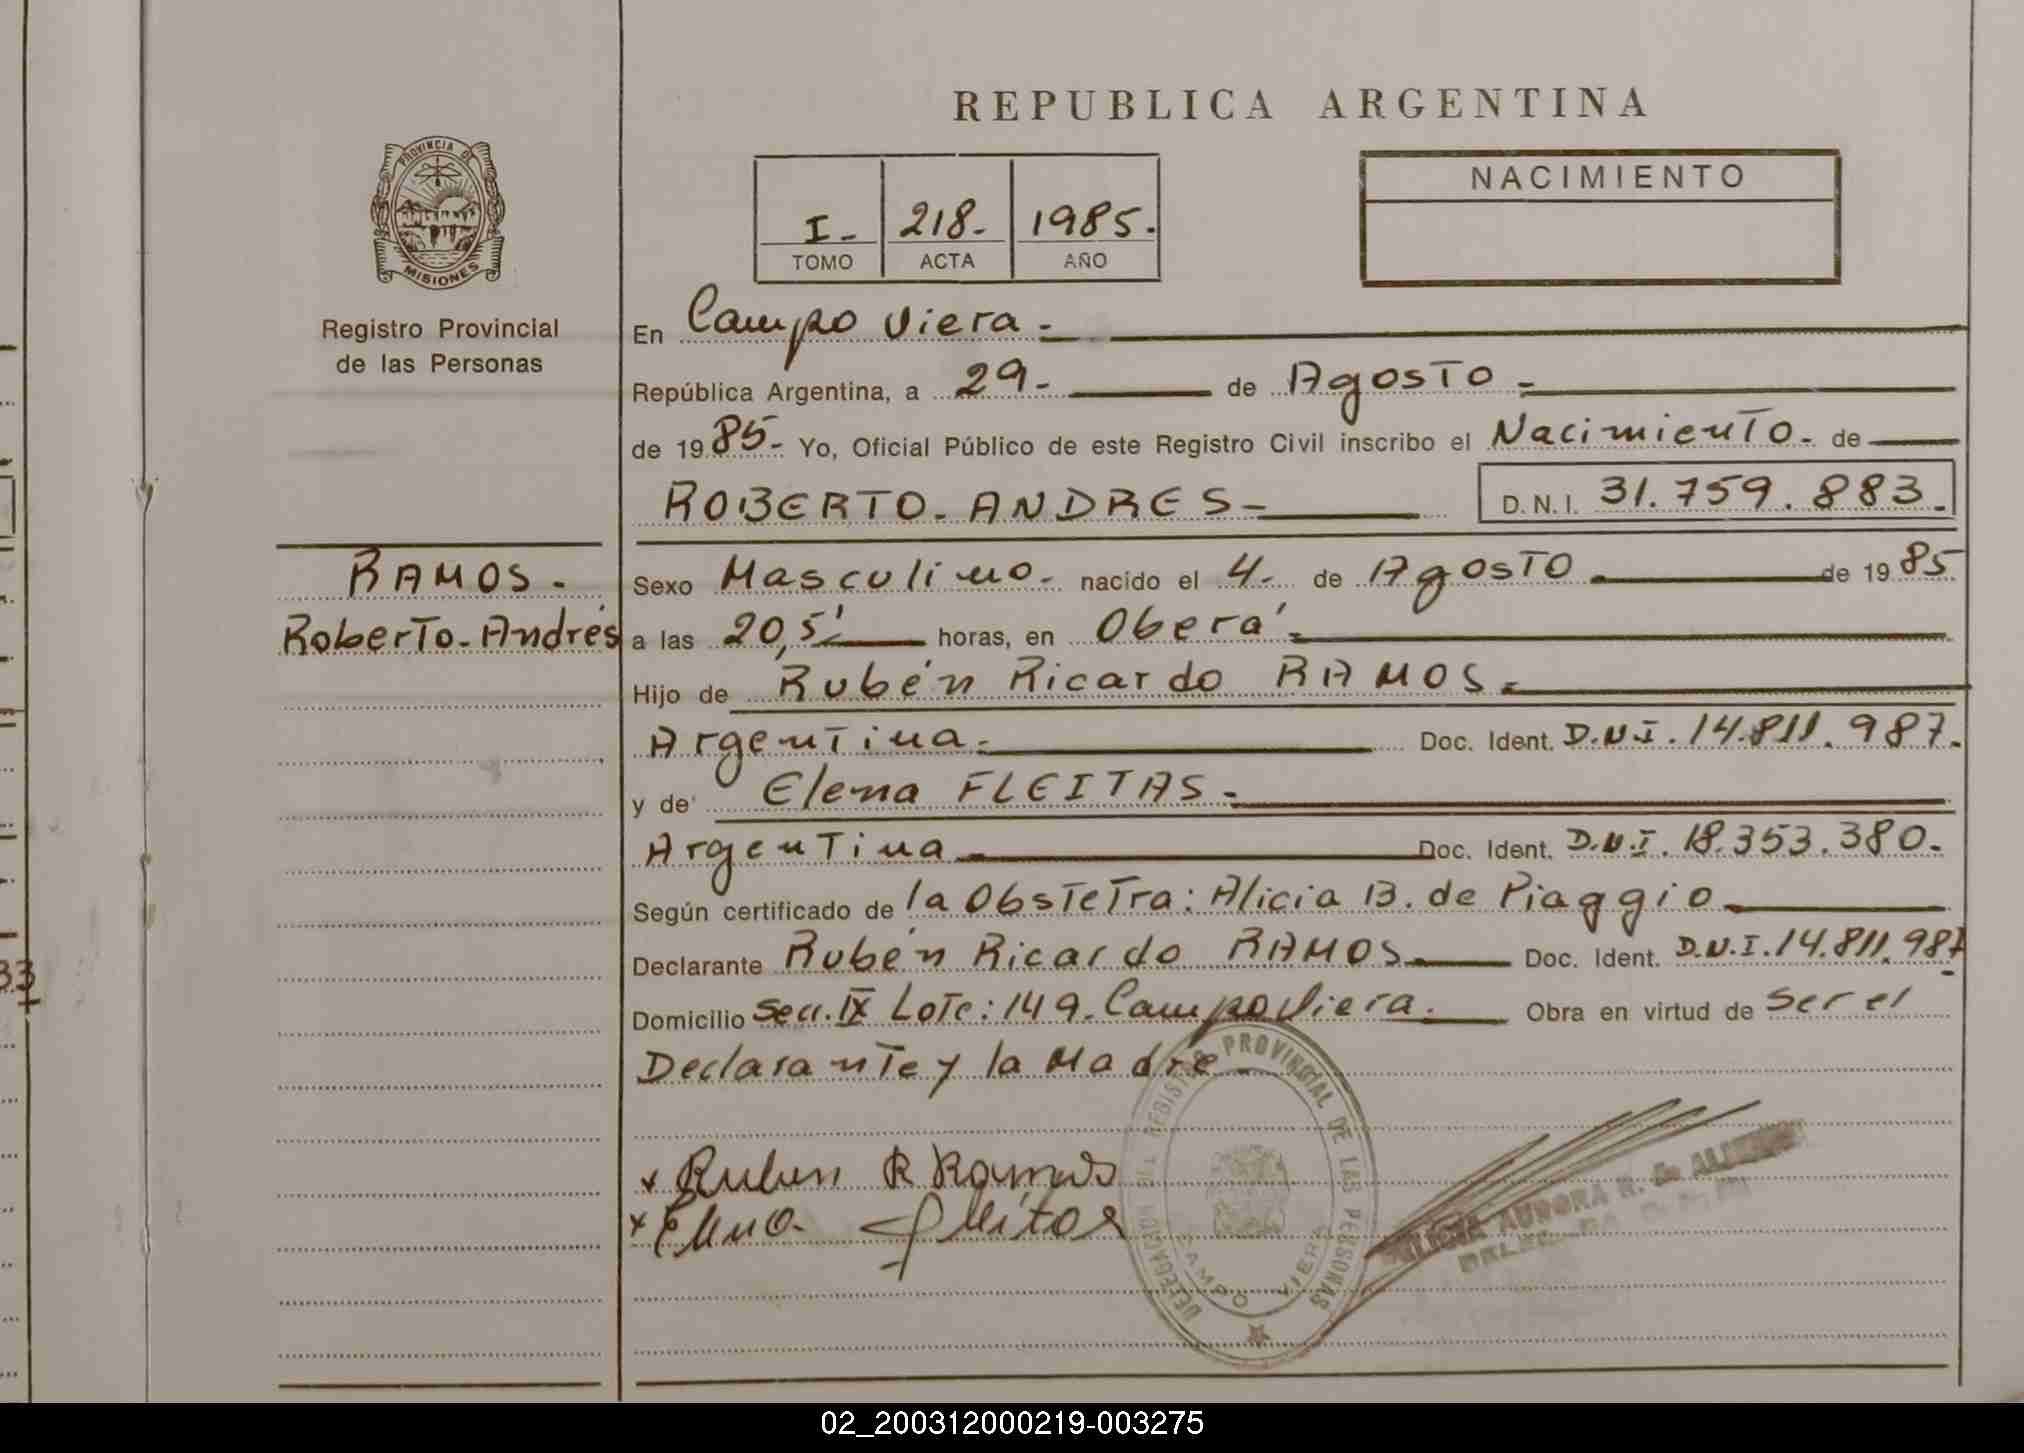 REPUBLICA ARGENTINA
PROVINCIA DE
MISIONES
Registro Provincial
de las Personas
I- 218- 1985-
TOMO ACTA AÑO
NACIMIENTO
En Campo Viera-
República Argentina, a 29- de Agosto-
de 1985- Yo, Oficial Público de este Registro Civil inscribo el Nacimiento- de
ROBERTO-ANDRES- D.N.I. 31.759.883-
RAMOS-
Roberto-Andrés
Sexo Masculino- nacido el 4- de Agosto de 1985
a las 20,5' horas, en Oberá-
Hijo de Rubén Ricardo RAMOS-
Argentina- Doc. Ident. D.N.I. 14.811.987-
y de Elena FLEITAS-
Argentina- Doc. Ident. D.N.I. 18.353.380-
Según certificado de la Obstetra: Alicia B. de Piaggio
Declarante Rubén Ricardo RAMOS- Doc. Ident. D.N.I. 14.811.987-
Domicilio Secc. IX Lote: 149-Campo Viera- Obra en virtud de Ser el
Declarante y la Madre-
x Ruben R Ramos
x Elena Fleitas
DELEGACION DEL REGISTRO PROVINCIAL DE LAS PERSONAS
CAMPO VIERA
ALICIA AURORA R. de
33
02_200312000219-003275